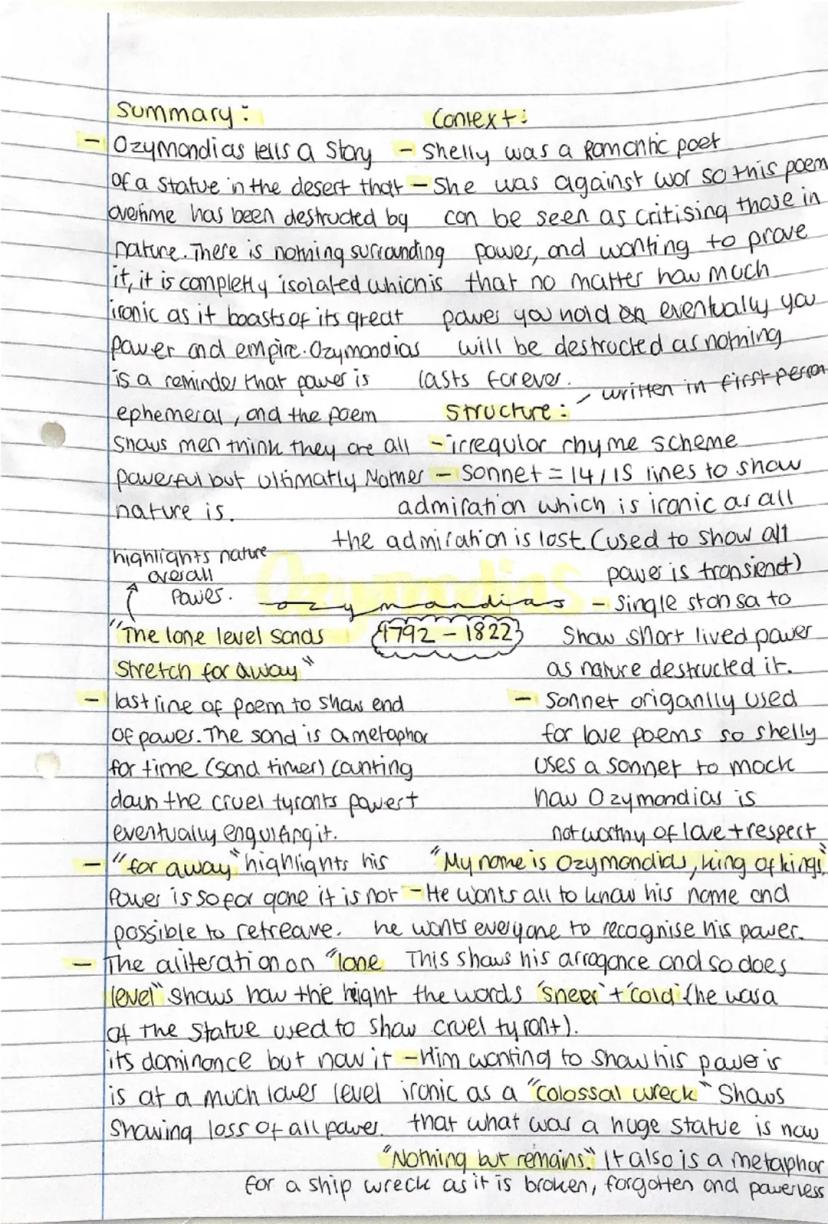 Summary:
- Ozymandias tells a Story
of a statue in the desert that
overtime has been destructed by
nature. There is nothing surrounding
it, it is completly isolated which is
ironic as it boasts of its great
power and empire. Ozymandias
is a reminder that power is
ephemeral, and the poem
shows men think they are all
powerful but ultimatly Mother
nature is.
Context:
- Shelly was a Romantic poet
- She was against war so this poem
can be seen as critising those in
power, and wanting to prove
that no matter how much
power you hold on eventually you
will be destructed as nothing
lasts forever.
Structure: - written in first person
- irregular rhyme scheme
- Sonnet = 14/15 lines to show
admiration which is ironic as all
the admiration is lost (used to show all
power is transient)
- Single stansa to
Show short lived power
as nature destructed it.
- Sonnet origanlly used
for love poems so shelly
uses a sonnet to mock
how Ozymandias is
not worthy of love + respect
Ozymandias
1792 - 1822
highlights nature
overall
power.
"The lone level sands
stretch far away"
- last line of poem to show end
of power. The sand is a metaphor
for time (sand timer) counting
down the cruel tyrants power +
eventually engulfing it.
- "far away" highlights his
Power is so far gone it is not
possible to retreave.
- The aliteration on "lone
level" shows how the hight
of the statue used to show
its dominance but now it
is at a much lower level
showing loss of all power.
"My name is Ozymandias, king of kings"
- He wants all to know his name and
he wants everyone to recognise his power.
This shows his arrogance and so does
the words 'sneer' + 'cold' (he was a
cruel tyrant).
- Him wanting to show his power is
ironic as a "colossal wreck" Shows
that what was a huge statue is now
"Nothing but remains." It also is a metaphor
for a ship wreck as it is broken, forgotten and powerless